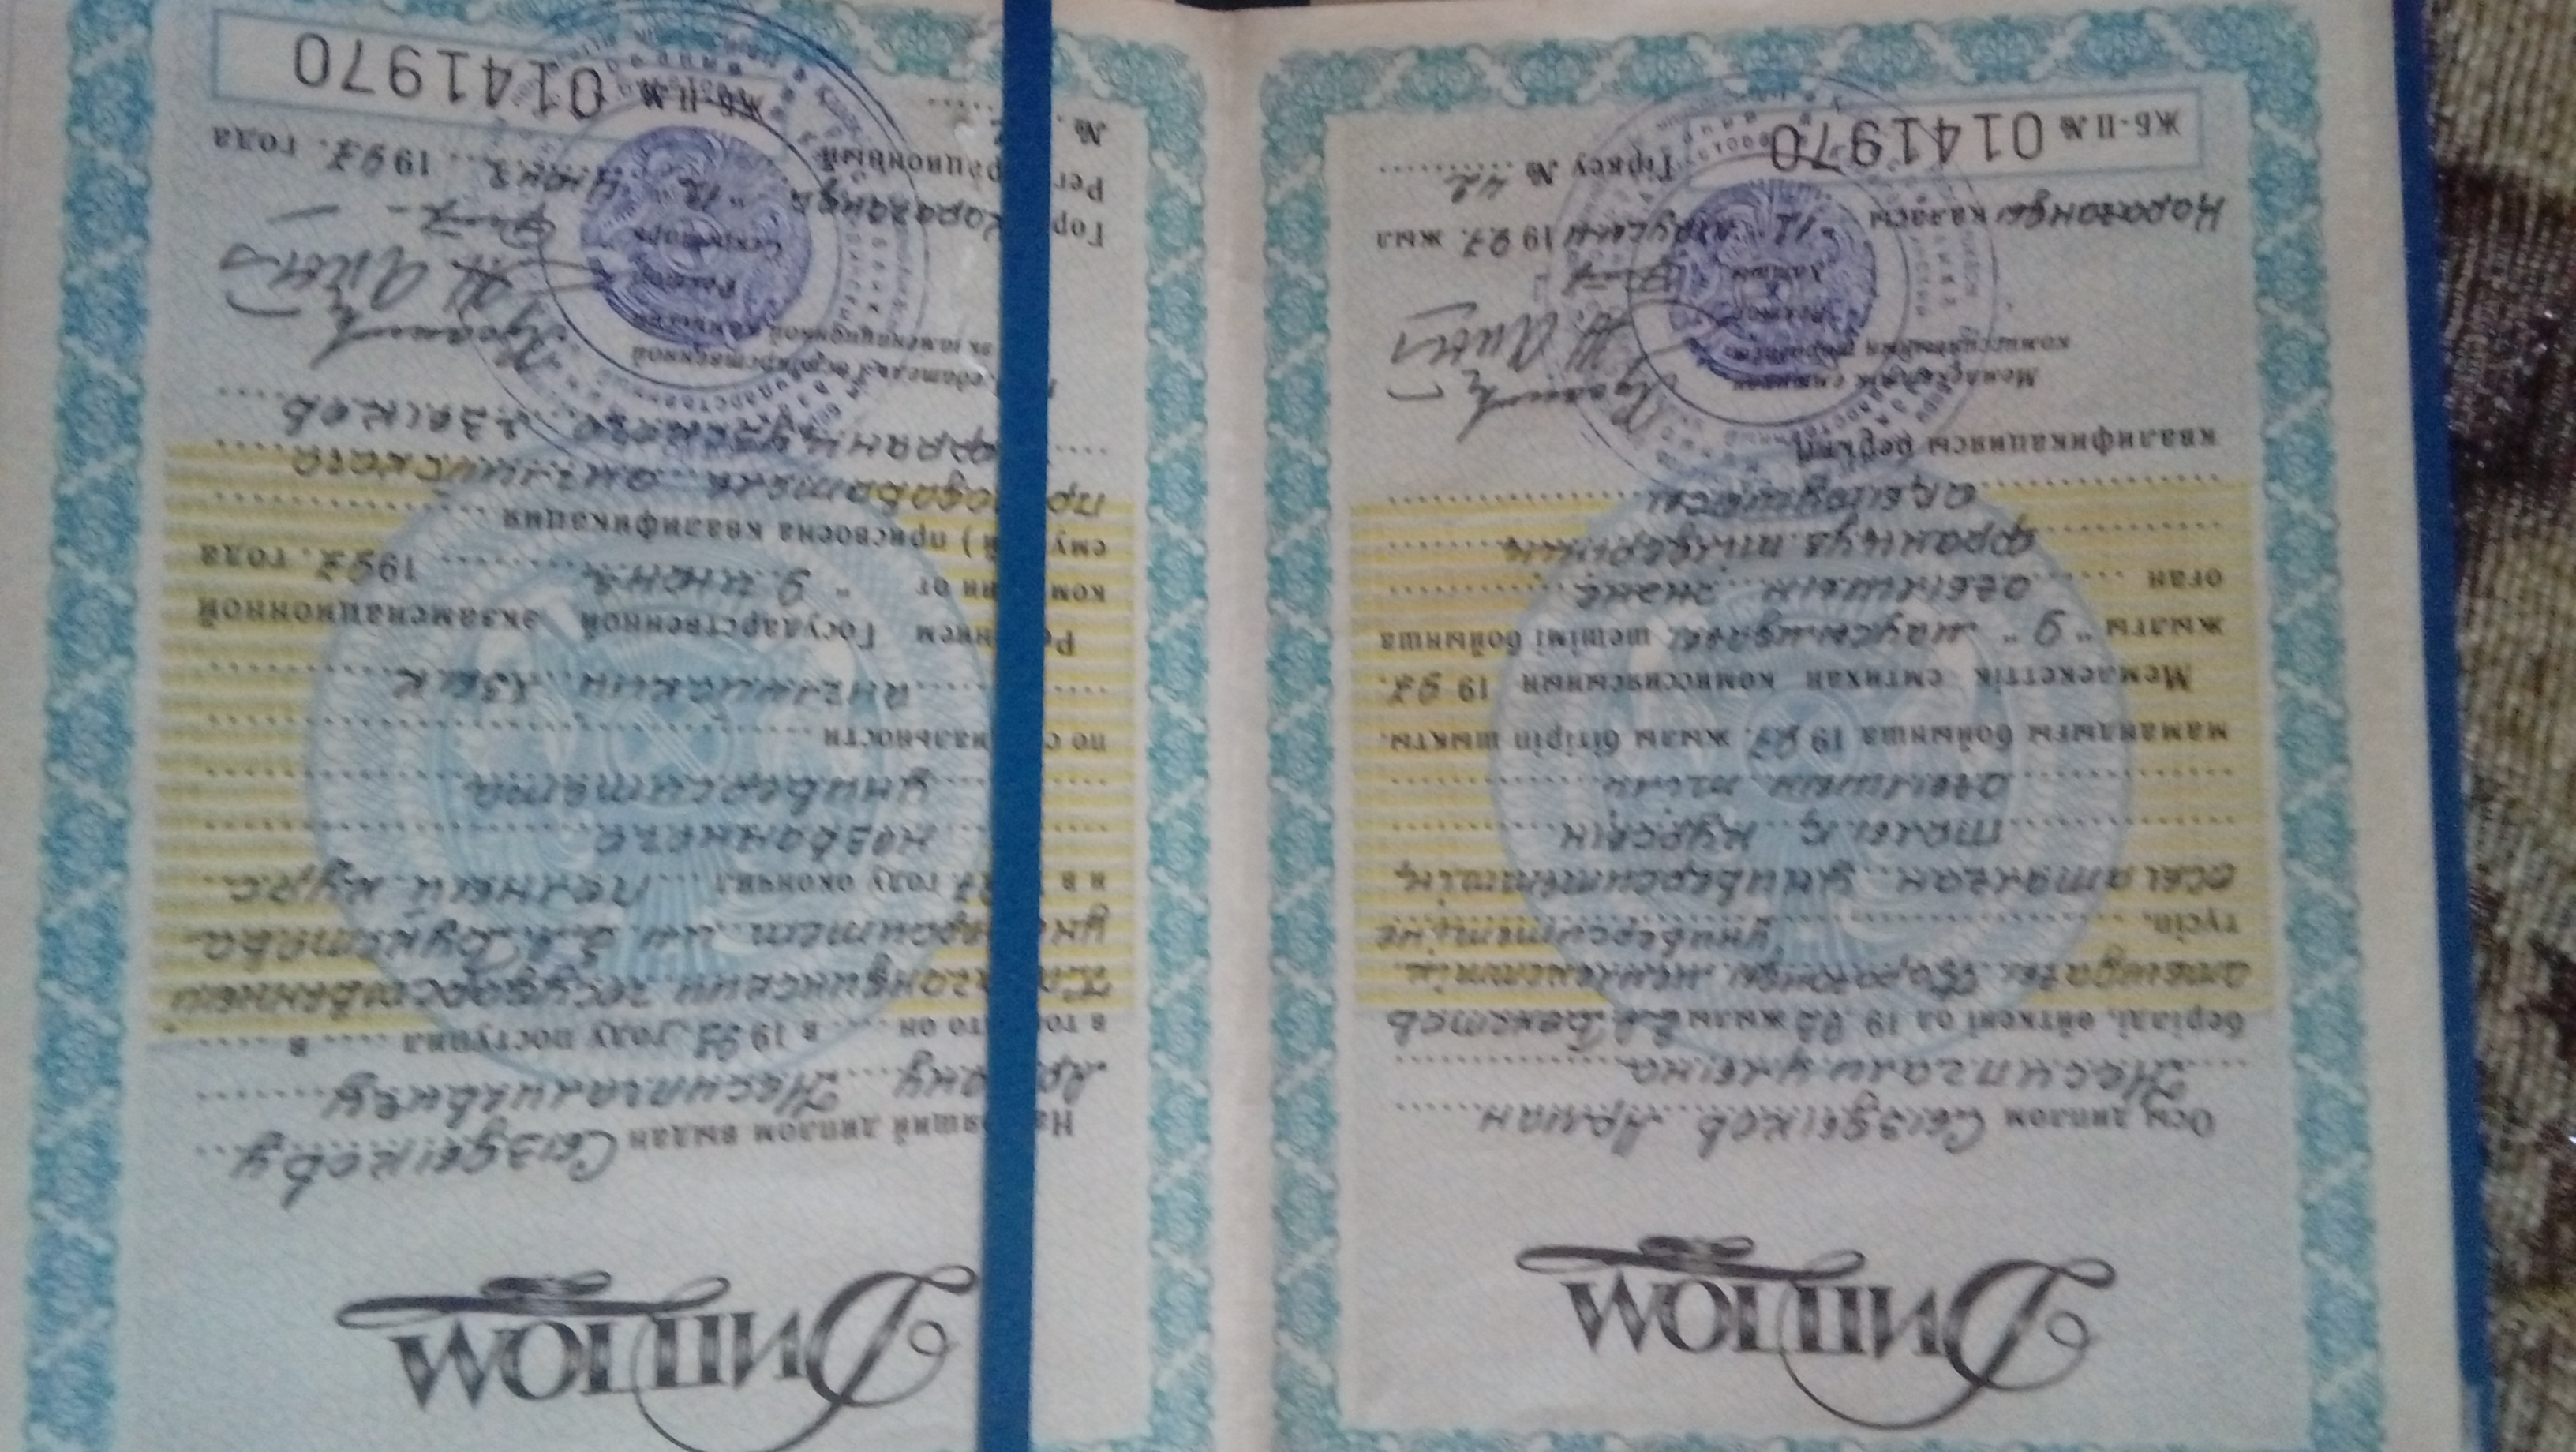 Диплом
Осы диплом Сыздыков Арман
Жасипгалиулына
берілді, өйткені ол 19 92 жылы Е.А. Бөкетов
атындағы Қарағанды мемлекеттік
түсіп, университетіне
осы аталған университеттің
толық курсын
ағылшын тілі
мамандығы бойынша 19 97. жылы бітіріп шықты.
Мемлекеттік емтихан комиссиясының 19 97.
жылғы "9" маусымдағы шешімі бойынша
оған ағылшын және
француз тілдерінің
оқытушысы
квалификациясы берілді
Мемлекеттік емтихан
комиссиясының төрағасы
Ректор
Хатшы
Қарағанды қаласы "12" маусым 19 97. жыл
ЖБ-II № 0141970 Тіркеу № 42
Диплом
На ящий диплом выдан Сыздыкову
Ар ану Жасипгалиевичу
в том что он в 19 92 году поступил в
Ка агандинский государственный
уни ерситет им. Е.А. Букетова
и в 97 году окончил полный курс
названного
университета
по с иальности
Английский язык
Ре нием Государственной экзаменационной
ком ии от "9 июня 1997. года
ему й) присвоена квалификация
пр подаватель английского
французского языков
едатель Государственной
экзаменационной комиссии
Ректор
Секретарь
Гор Караганда "12" июня 1997. года
Рег рационный
№
ЖБ-II № 0141970